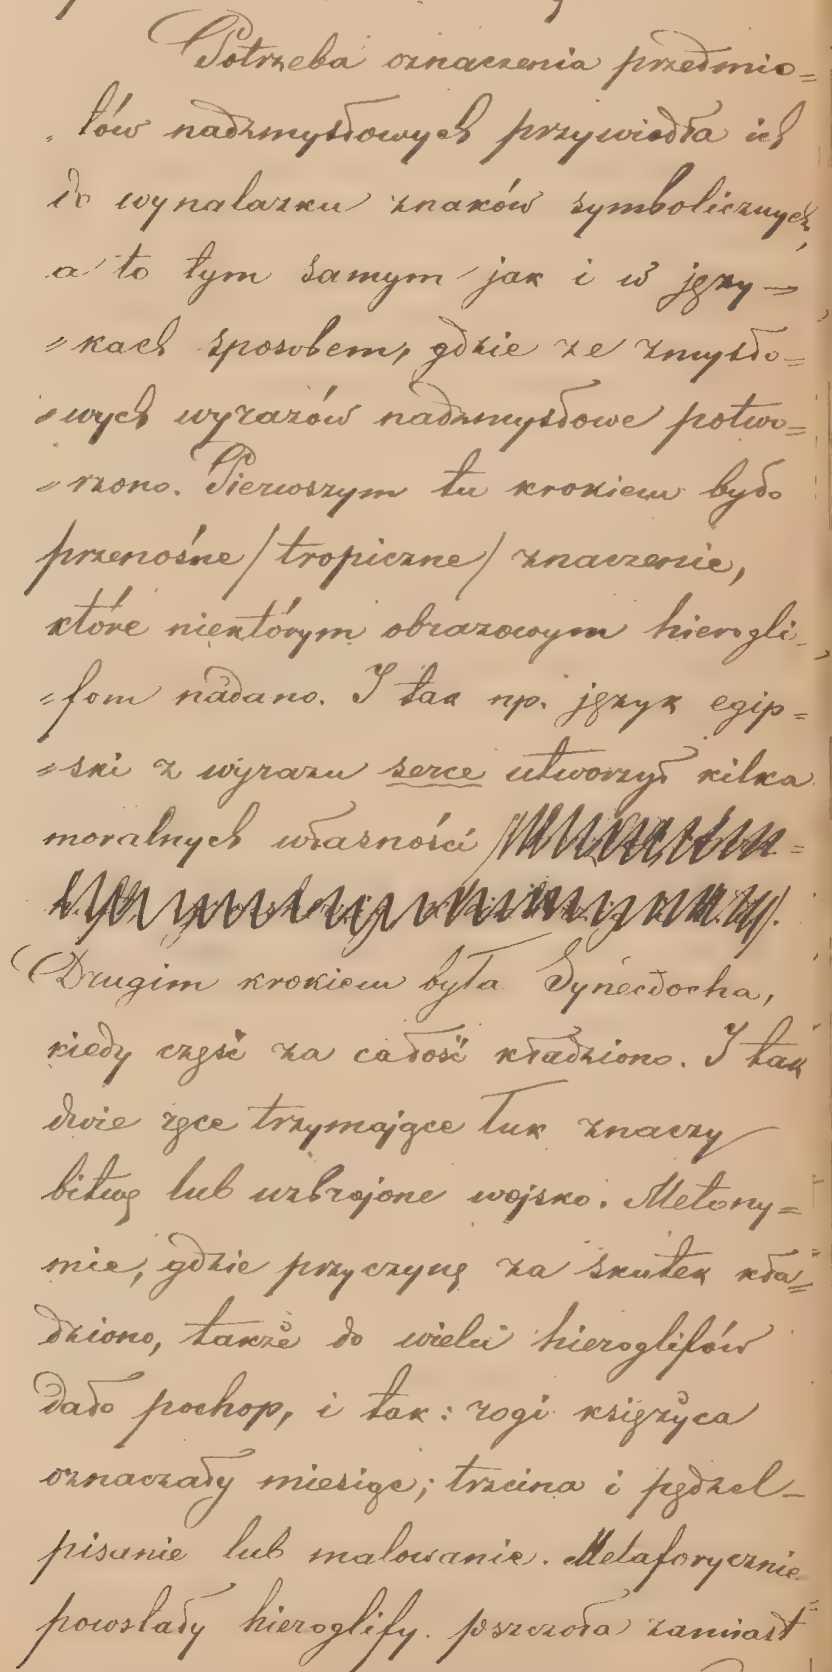 Potrzeba oznaczenia przedmio=
„tów nadzmysłowych przywiodła ich
do wynalazku znaków symbolicznych,
a to tym samym jak i w języ=
„kach sposobem, gdzie ze zmysło=
„wych wyrazów nadzmysłowe potwo=
„rzono. Pierwszym tu krokiem było
przenośne /tropiczne/ znaczenie,
które niektórym obrazowym hierogli=
„fom nadano. I tak np. język egip=
„ski z wyrazu serce utworzył kilka
moralnych własności
Drugim krokiem była Synecdocha,
kiedy część za całość kładziono. I tak
dwie ręce trzymające łuk znaczy
bitwę lub uzbrojone wojsko. Metony=
mie, gdzie przyczynę za skutek kła=
dziono, także do wielu hieroglifów
dało pochop, i tak: rogi księżyca
oznaczały miesiąc; trzcina i pędzel—
pisanie lub malowanie. Metaforycznie
powstały hieroglify. pszczoła zamiast